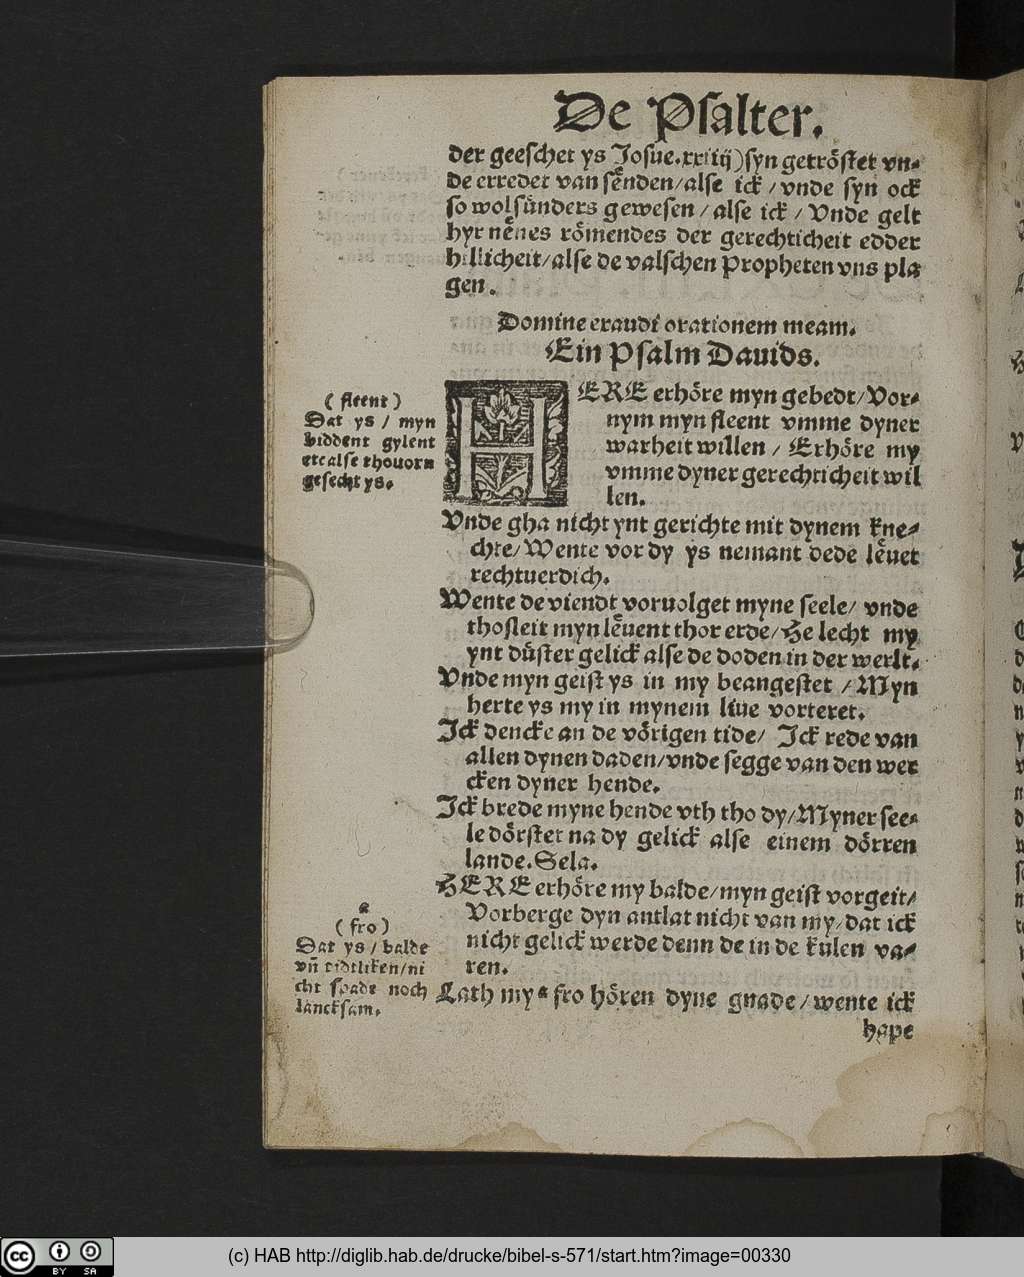 De Psalter.
der geeschet ys Josue.xxiiij) syn getröstet vn-
de erredet van sẽnden/alse ick/vnde syn ock
so wolsünders gewesen/alse ick/Vnde gelt
hyr nẽnes römendes der gerechticheit edder
hillicheit/alse de valschen Propheten vns pla
gen.
Domine exaudi orationem meam.
Ein Psalm Dauids.
( fleent )
Dat ys / myn
biddent gylent
etc alse thouorn
gesecht ys.
HERE erhöre myn gebedt/Vor-
nym myn fleent vmme dyner
warheit willen / Erhöre my
vmme dyner gerechticheit wil
len.
Vnde gha nicht ynt gerichte mit dynem kne-
chte/Wente vor dy ys nemant dede lẽuet
rechtuerdich.
Wente de viendt voruolget myne seele/ vnde
thosleit myn lẽuent thor erde/He lecht my
ynt düster gelick alse de doden in der werlt.
Vnde myn geist ys in my beangestet /Myn
herte ys my in mynem liue vorteret.
Ick dencke an de vörigen tide/ Ick rede van
allen dynen daden/vnde segge van den wer
cken dyner hende.
Ick brede myne hende vth tho dy/Myner see-
le dörstet na dy gelick alse einem dörren
lande.Sela.
HERE erhöre my balde/myn geist vorgeit/
Vorberge dyn antlat nicht van my/dat ick
nicht gelick werde denn de in de kulen va-
ren.
a
( fro )
Dat ys / balde
vñ tidtliken/ni
cht spade noch
lancksam.
Lath my a fro hören dyne gnade/wente ick
hape
(c) HAB http://diglib.hab.de/drucke/bibel-s-571/start.htm?image=00330
cc BY SA